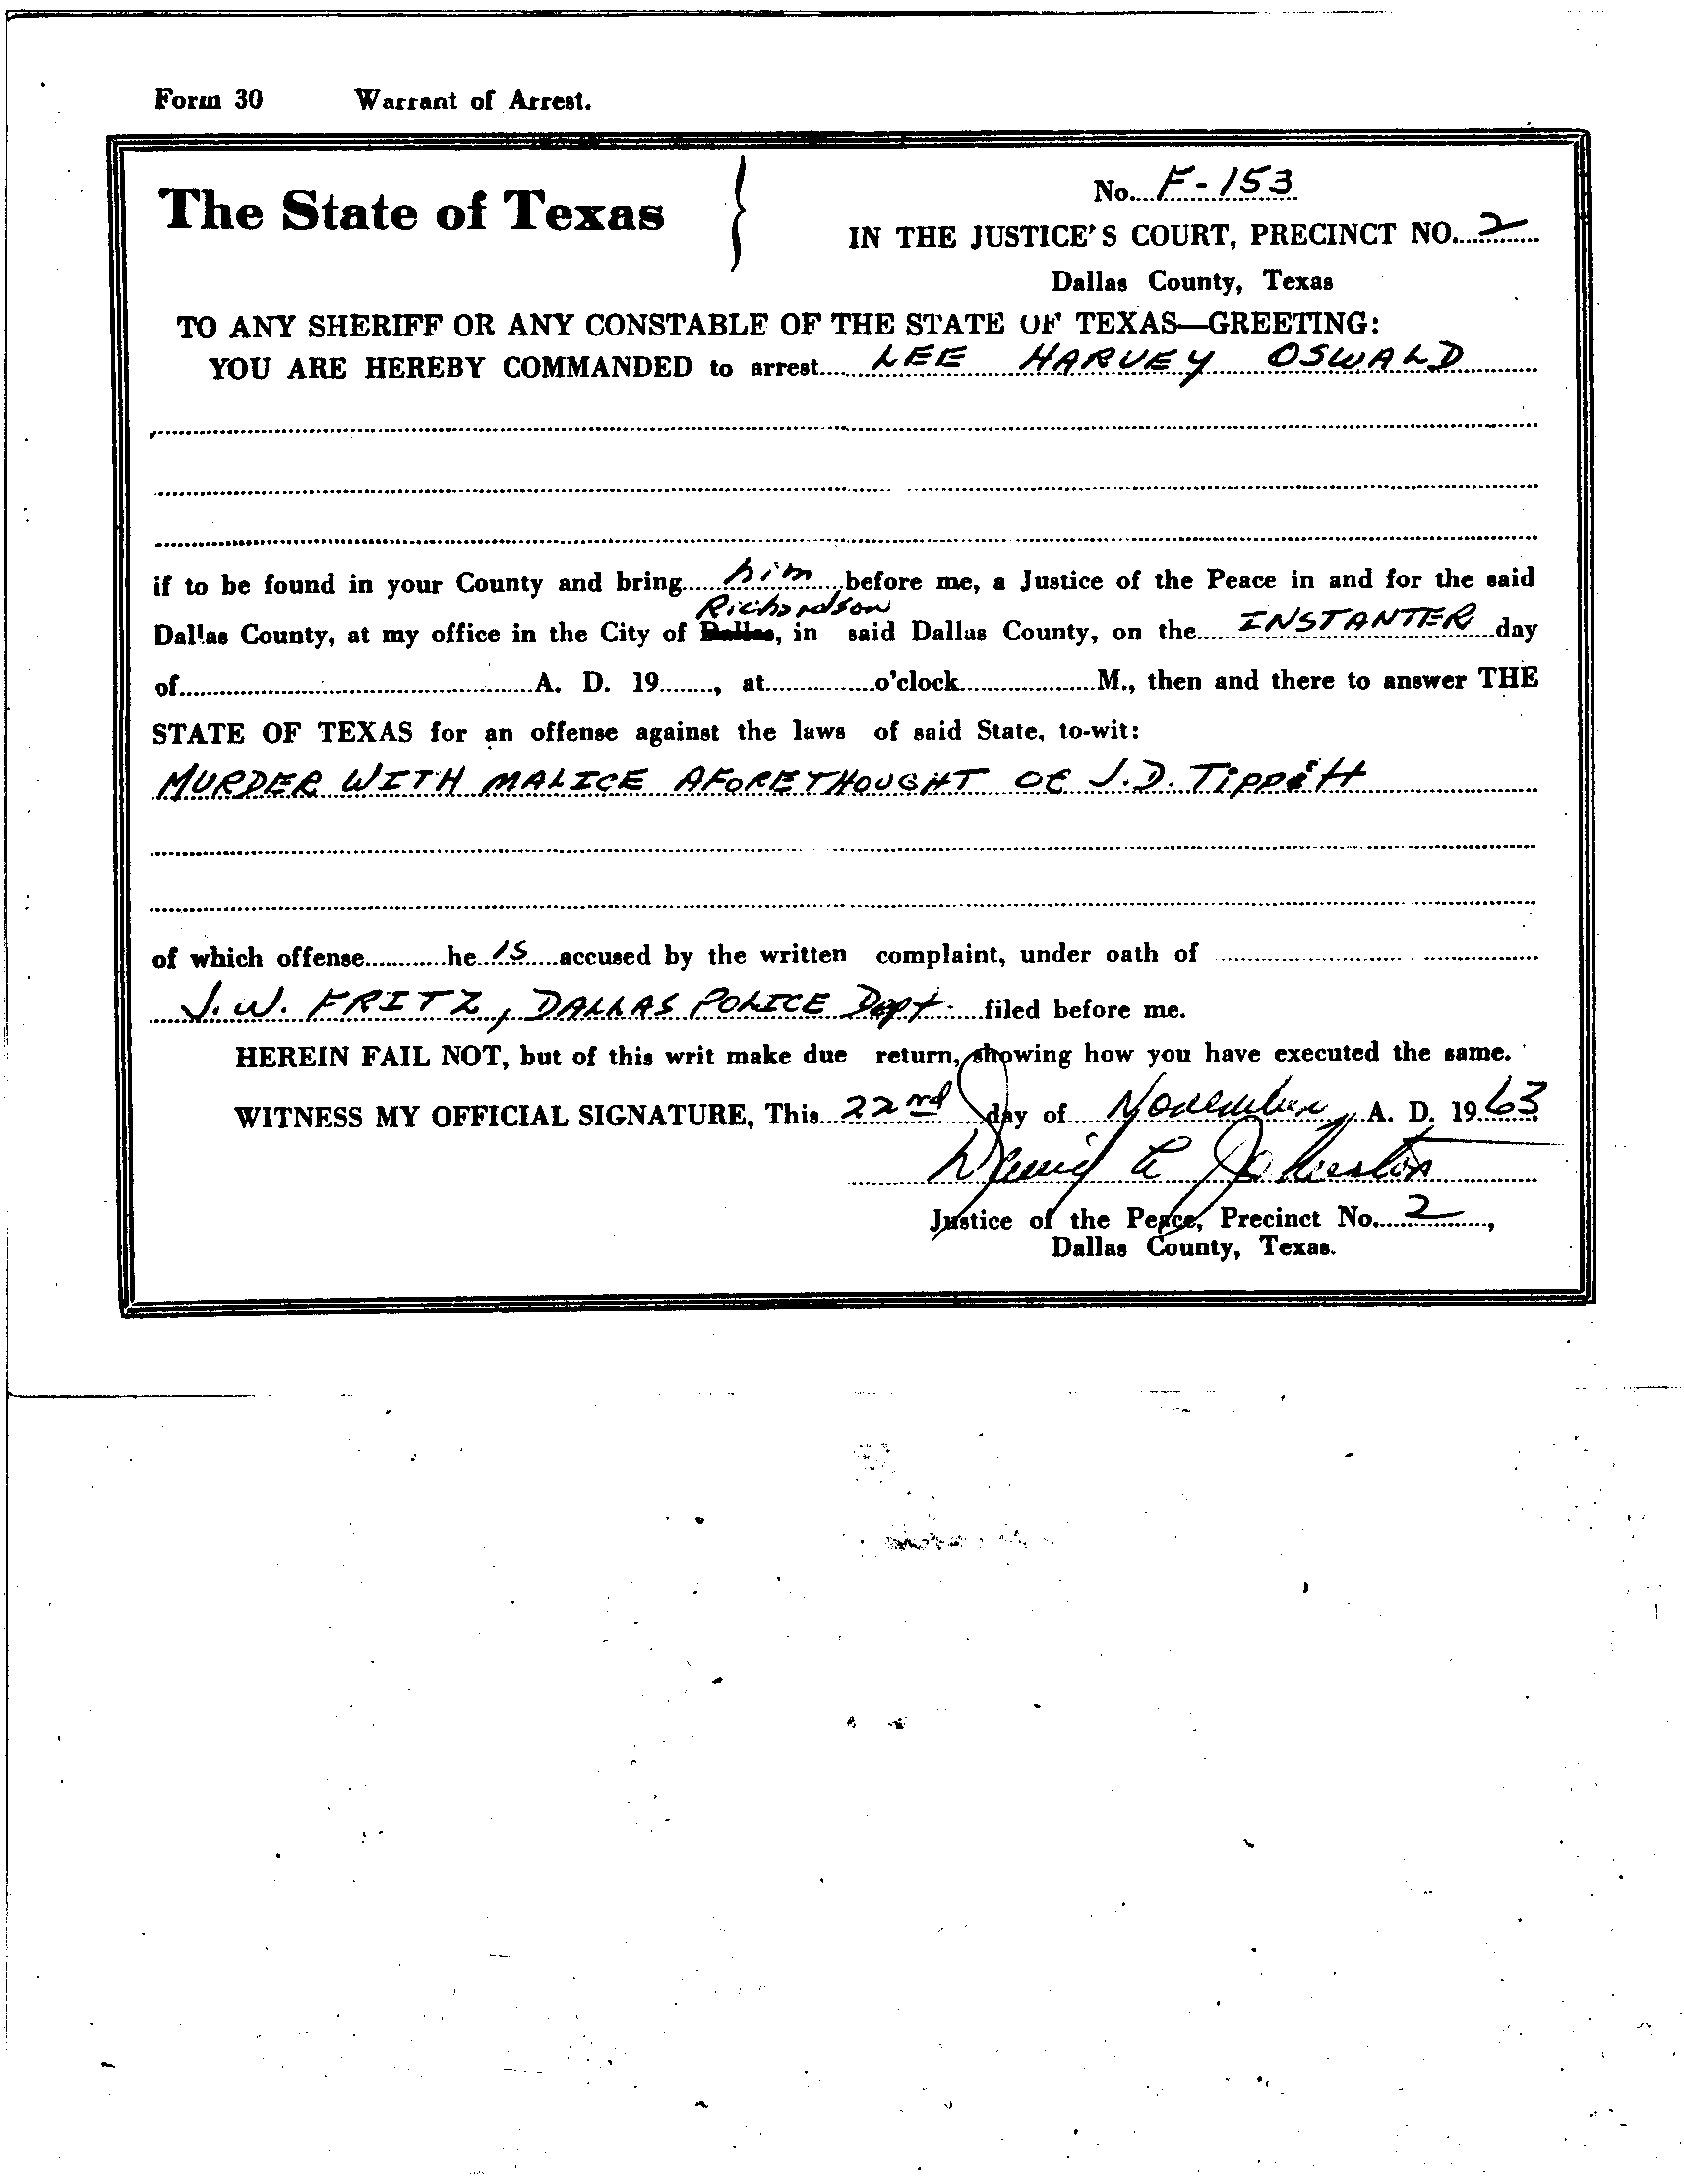 Form 30 Warrant of Arrest.
The State of Texas
No. F-153
IN THE JUSTICE'S COURT, PRECINCT NO. 2
Dallas County, Texas
TO ANY SHERIFF OR ANY CONSTABLE OF THE STATE OF TEXAS—GREETING:
YOU ARE HEREBY COMMANDED to arrest LEE HARVEY OSWALD
if to be found in your County and bring him before me, a Justice of the Peace in and for the said
Richardson
Dallas County, at my office in the City of Dallas, in said Dallas County, on the INSTANTER day
of A. D. 19 , at o'clock M., then and there to answer THE
STATE OF TEXAS for an offense against the laws of said State, to-wit:
MURDER WITH MALICE AFORETHOUGHT OF J.D. Tippitt
of which offense he IS accused by the written complaint, under oath of
J. W. FRITZ, DALLAS POLICE Dept. filed before me.
HEREIN FAIL NOT, but of this writ make due return, showing how you have executed the same.
WITNESS MY OFFICIAL SIGNATURE, This 22nd day of November, A. D. 1963
David L Johnston
Justice of the Peace, Precinct No. 2,
Dallas County, Texas.